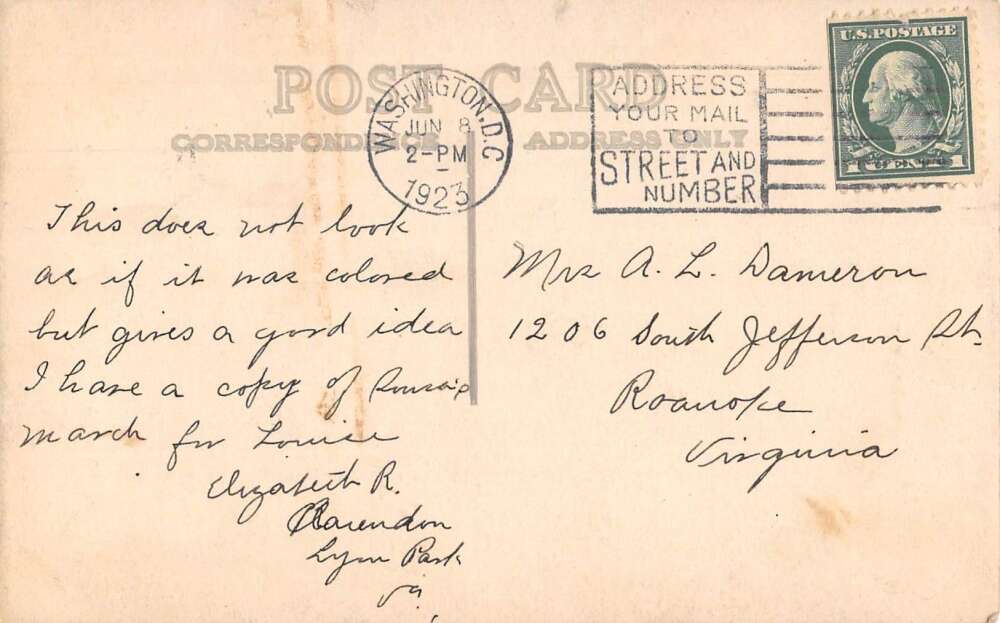 POST CARD
CORRESPONDENCE ADDRESS ONLY
WASHINGTON, D.C.
JUN 8
2-PM
1923
ADDRESS
YOUR MAIL
TO
STREET AND
NUMBER
U.S. POSTAGE
1 CENT 1
This does not look
as if it was colored
but gives a good idea
I have a copy of Sousa's
march for Louise
Elizabeth R.
Clarendon
Lyon Park
Va.
Mrs A. L. Dameron
1206 South Jefferson St.
Roanoke
Virginia